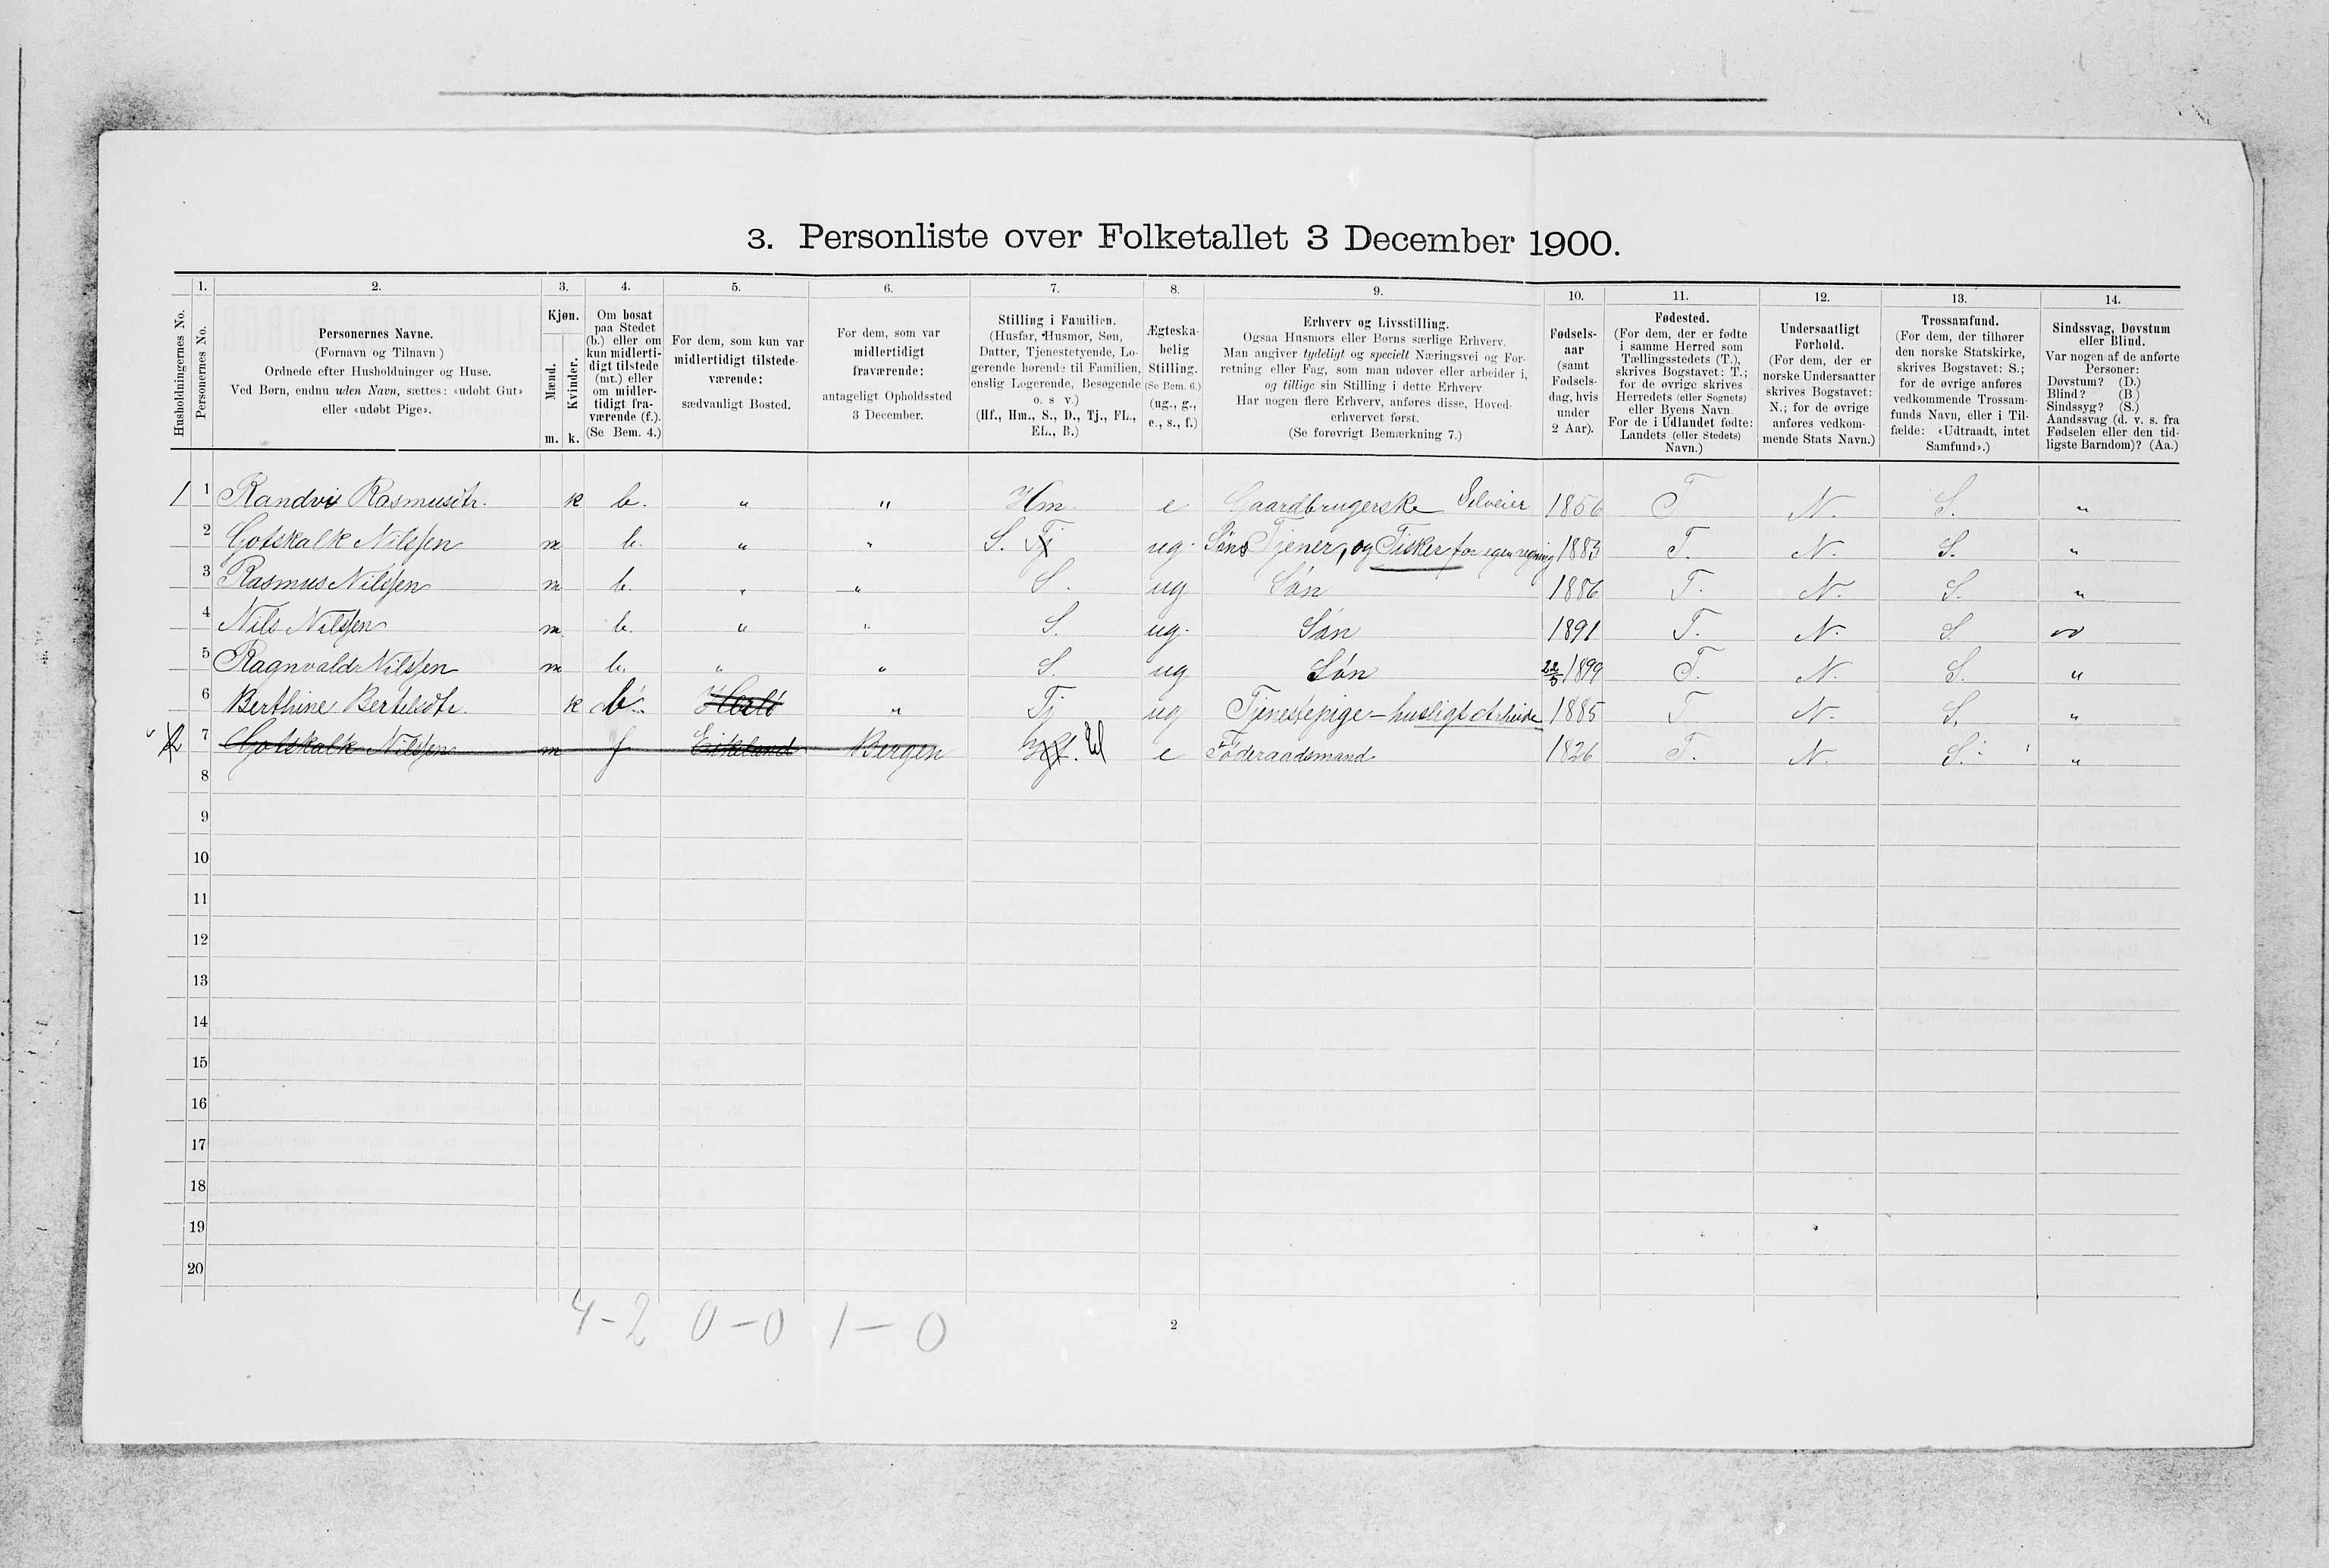 3. Personliste over Folketallet 3 December 1900.
1. 2. 3. 4. 5. 6. 7. 8. 9. 10. 11. 12. 13. 14.
Husholdningernes No.
Personernes No.
Personernes Navne.
(Fornavn og Tilnavn)
Ordnede efter Husholdninger og Huse.
Ved Børn, endnu uden Navn, sættes: «udøbt Gut»
eller «udøbt Pige».
Kjøn.
Mænd.
Kvinder.
m. k.
Om bosat
paa Stedet
(b.) eller om
kun midlerti-
digt tilstede
(mt.) eller
om midler-
tidigt fra-
værende (f.).
(Se Bem. 4.)
For dem, som kun var
midlertidigt tilstede-
værende:
sædvanligt Bosted.
For dem, som var
midlertidigt
fraværende:
antageligt Opholdssted
3 December.
Stilling i Familien.
(Husfar, Husmor, Søn,
Datter, Tjenestetyende, Lo-
gerende hørende til Familien,
enslig Logerende, Besøgende
o. s v.)
(Hf., Hm., S., D., Tj., FL.,
EL., B.)
Ægteska-
belig
Stilling.
(Se Bem. 6.)
(ug., g.,
e., s., f.)
Erhverv og Livsstilling.
Ogsaa Husmors eller Børns særlige Erhverv.
Man angiver tydeligt og specielt Næringsvei og For-
retning eller Fag, som man udøver eller arbeider i,
og tillige sin Stilling i dette Erhverv
Har nogen flere Erhverv, anføres disse, Hoved-
erhvervet først.
(Se forøvrigt Bemærkning 7.)
Fødsels-
aar
(samt
Fødsels-
dag, hvis
under
2 Aar).
Fødested.
(For dem, der er fødte
i samme Herred som
Tællingsstedets (T.),
skrives Bogstavet: T.;
for de øvrige skrives
Herredets (eller Sognets)
eller Byens Navn
For de i Udlandet fødte:
Landets (eller Stedets)
Navn.)
Undersaatligt
Forhold.
(For dem, der er
norske Undersaatter
skrives Bogstavet:
N.; for de øvrige
anføres vedkom-
mende Stats Navn.)
Trossamfund.
(For dem, der tilhører
den norske Statskirke,
skrives Bogstavet: S.;
for de øvrige anføres
vedkommende Trossam-
funds Navn, eller i Til-
fælde: «Udtraadt, intet
Samfund».)
Sindssvag, Døvstum
eller Blind.
Var nogen af de anførte
Personer:
Døvstum? (D.)
Blind? (B.)
Sindssyg? (S.)
Aandssvag (d. v. s. fra
Fødselen eller den tid-
ligste Barndom)? (Aa.)
1 1 Randvi Rasmusdtr. k b. " " Hm e Gaardbrugerske Selveier 1856 T N. S. "
2 Gotskalk Nilssen m b. " " S. Tj ug. Søn Tjener, og Fisker for egen regning 1883 T. N. S. "
3 Rasmus Nilssen m b. " " S. ug Søn 1886 T. N. S. "
4 Nils Nilssen m b. " " S. ug. Søn 1891 T. N. S. "
5 Ragnvald Nilssen m b. " " S. ug Søn 22/5 1899 T. N. S. "
6 Berthine Bertelsdtr k b. Herlö " Tj ug Tjenestepige - husligt Arbeide 1885 T N. S. "
2 7 Gotskalk Nilssen m f Eikeland Bergen El e Föderaadsmand 1826 T. N. S. "
8
9
10
11
12
13
14
15
16
17
18
19
20
4-2 0-0 1-0
2